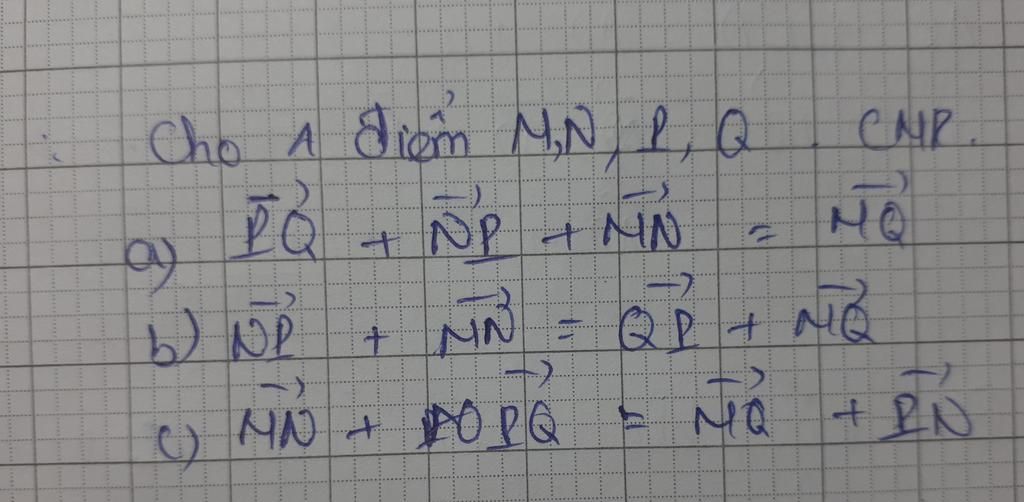 : Cho 4 điểm M,N, P, Q. CMR.
a) PQ⃗ + NP⃗ + MN⃗ = MQ⃗
b) NP⃗ + MN⃗ = QP⃗ + MQ⃗
c) MN⃗ + PQ⃗ = MQ⃗ + PN⃗